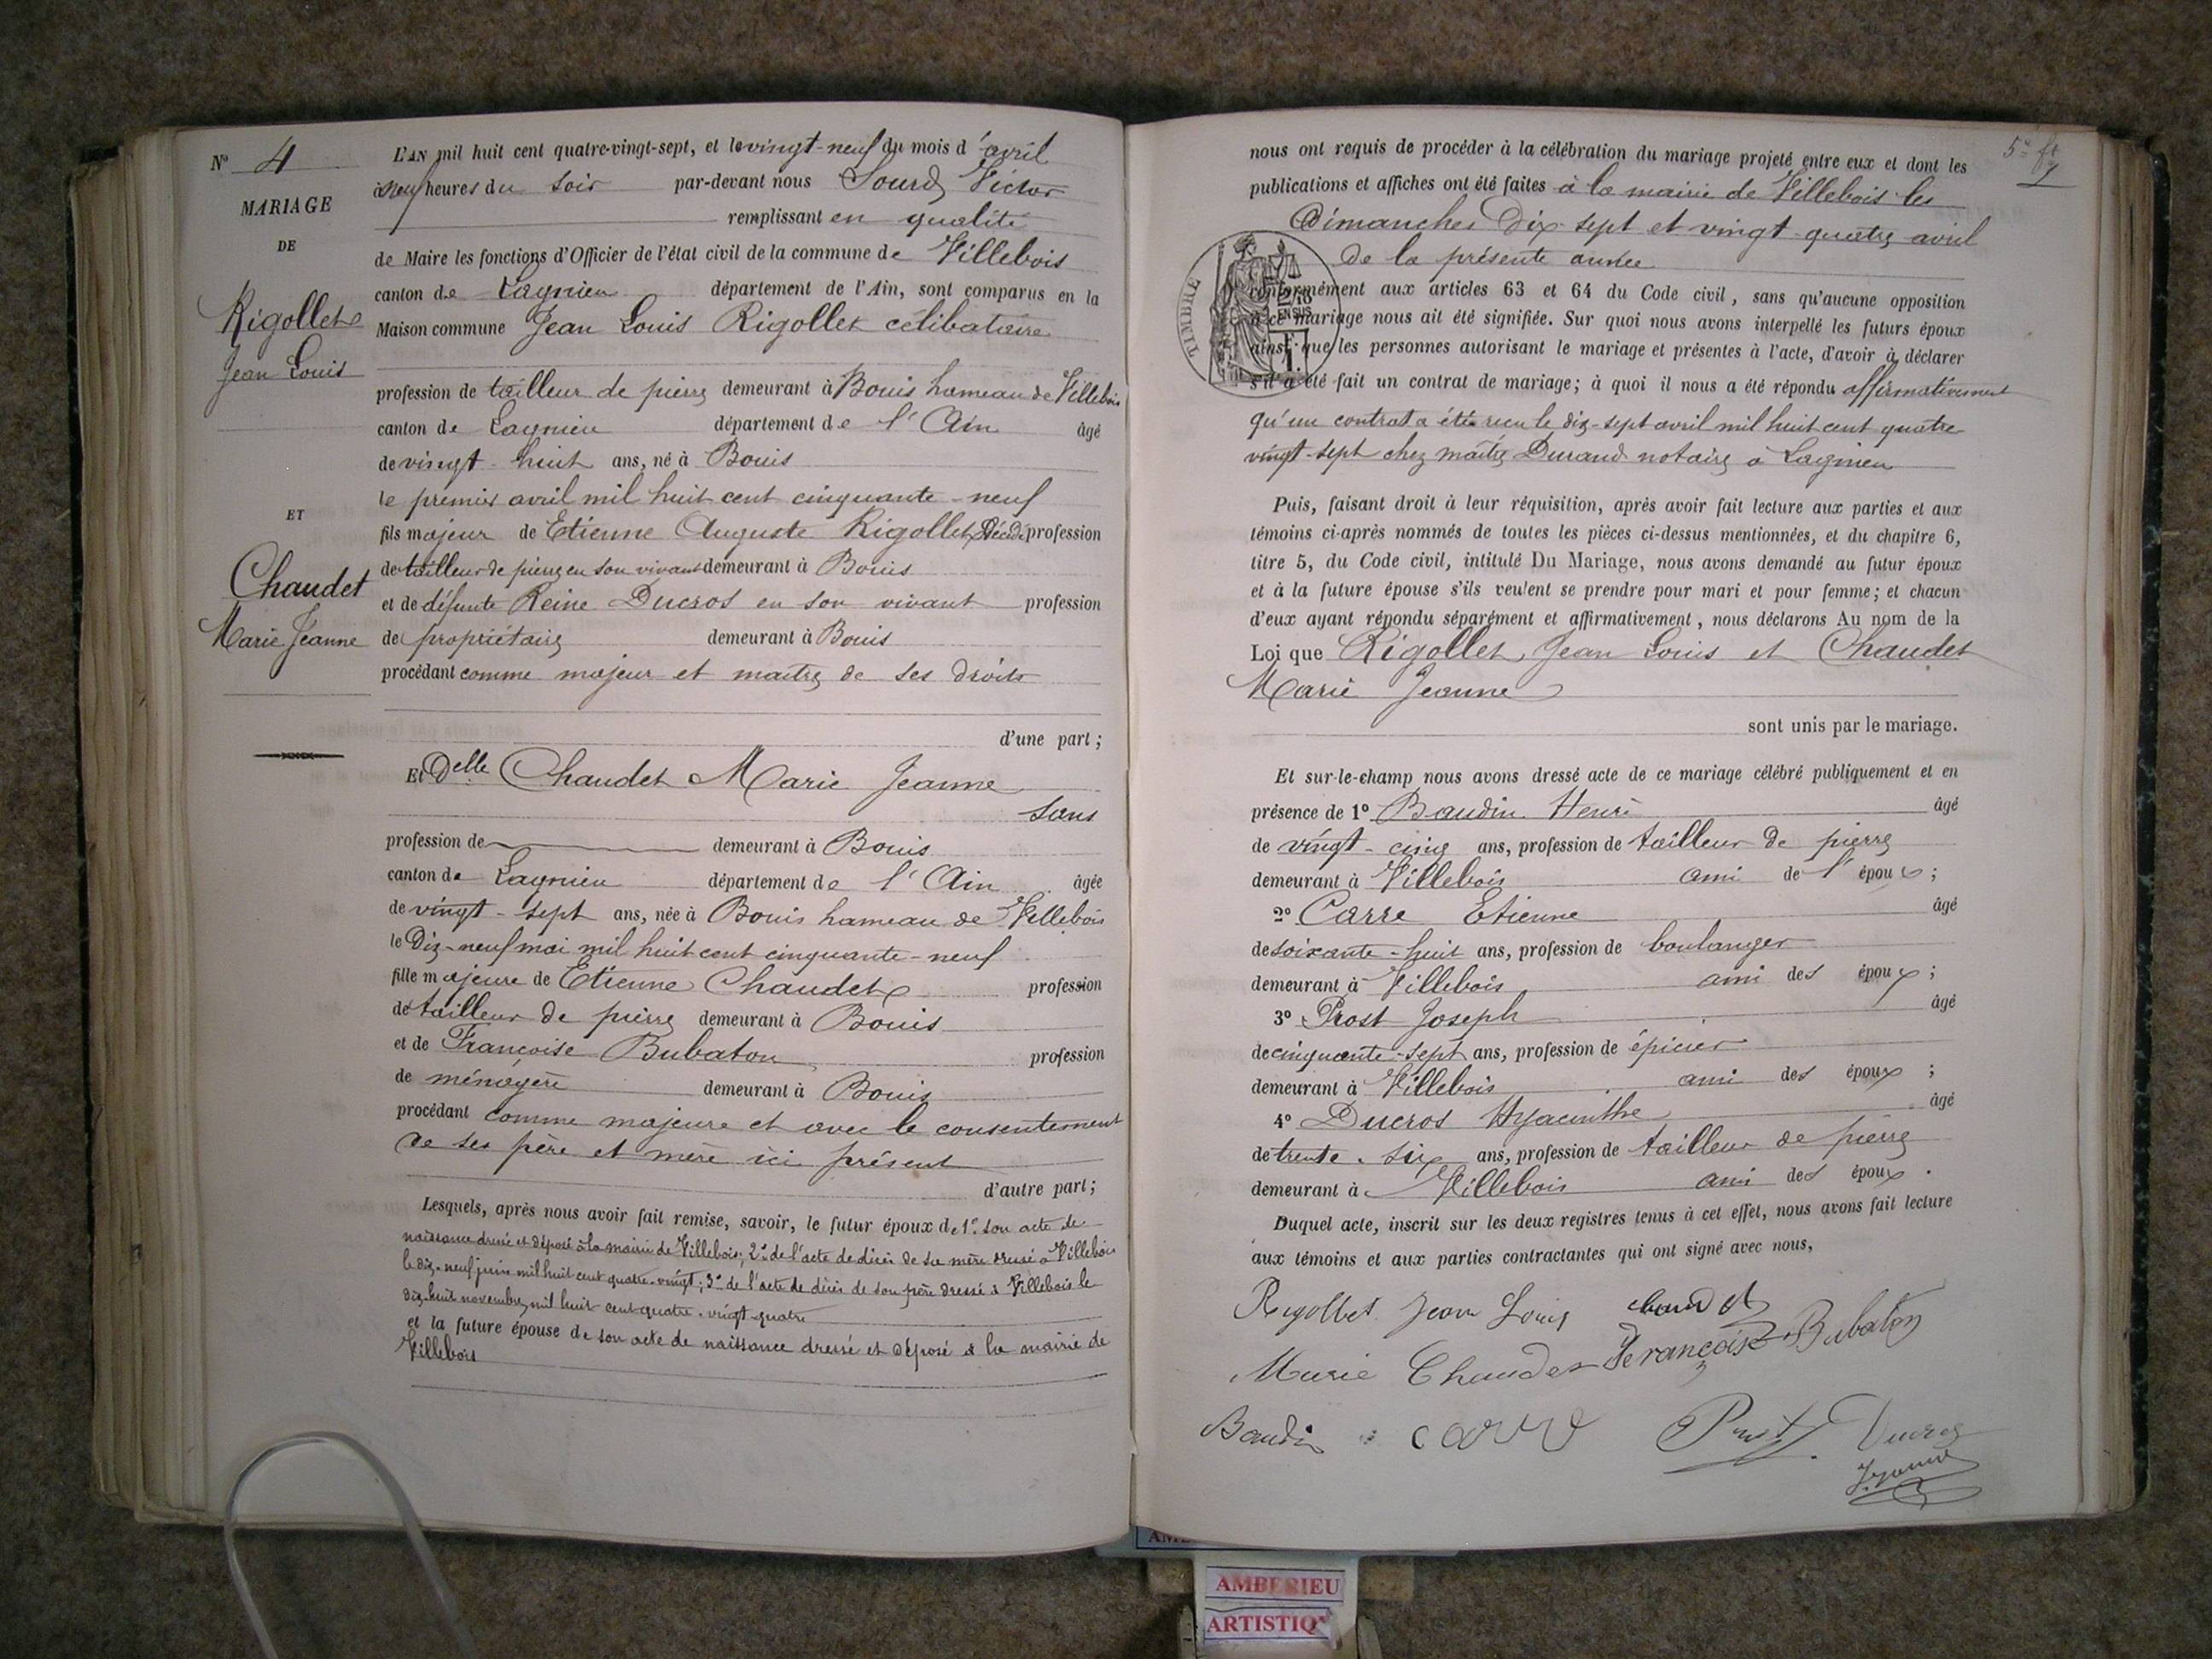 N° 4
MARIAGE
DE
Rigollet
Jean Louis
ET
Chaudet
Marie Jeanne
L'AN mil huit cent quatre-vingt-sept, et le vingt-neuf du mois d'avril
à neuf heures du soir par-devant nous Sourd Victor
remplissant en qualité
de Maire les fonctions d'Officier de l'état civil de la commune de Villebois
canton de Lagnieu département de l'Ain, sont comparus en la
Maison commune Jean Louis Rigollet célibataire
profession de tailleur de pierre demeurant à Bouis hameau de Villebois
canton de Lagnieu département de l'Ain âgé
de vingt-huit ans, né à Bouis
le premier avril mil huit cent cinquante-neuf
fils majeur de Etienne Auguste Rigollet Décédé profession
de tailleur de pierre en son vivant demeurant à Bouis
et de défunte Reine Ducros en son vivant profession
de propriétaire demeurant à Bouis
procédant comme majeur et maître de ses droits
d'une part;
Et Delle Chaudet Marie Jeanne
sans
profession de demeurant à Bouis
canton de Lagnieu département de l'Ain âgée
de vingt-sept ans, née à Bouis hameau de Villebois
le Dix-neuf mai mil huit cent cinquante-neuf
fille majeure de Etienne Chaudet profession
de tailleur de pierre demeurant à Bouis
et de Françoise Bubaton profession
de ménagère demeurant à Bouis
procédant comme majeure et avec le consentement
de ses père et mère ici présent
d'autre part;
Lesquels, après nous avoir fait remise, savoir, le futur époux de 1° son acte de
naissance dressé et déposé à la mairie de Villebois; 2° de l'acte de décès de sa mère dressé à Villebois
le dix-neuf juin mil huit cent quatre-vingt; 3° de l'acte de décès de son père dressé à Villebois le
dix-huit novembre mil huit cent quatre-vingt-quatre
et la future épouse de son acte de naissance dressé et déposé à la mairie de
Villebois
5e ft
nous ont requis de procéder à la célébration du mariage projeté entre eux et dont les
publications et affiches ont été faites à la mairie de Villebois les
Dimanches Dix-sept et vingt-quatre avril
de la présente année
TIMBRE
EN SUS
conformément aux articles 63 et 64 du Code civil, sans qu'aucune opposition
à ce mariage nous ait été signifiée. Sur quoi nous avons interpellé les futurs époux
ainsi que les personnes autorisant le mariage et présentes à l'acte, d'avoir à déclarer
s'il a été fait un contrat de mariage; à quoi il nous a été répondu affirmativement
qu'un contrat a été reçu le dix-sept avril mil huit cent quatre
vingt-sept chez maître Durand notaire à Lagnieu
Puis, faisant droit à leur réquisition, après avoir fait lecture aux parties et aux
témoins ci-après nommés de toutes les pièces ci-dessus mentionnées, et du chapitre 6,
titre 5, du Code civil, intitulé Du Mariage, nous avons demandé au futur époux
et à la future épouse s'ils veulent se prendre pour mari et pour femme; et chacun
d'eux ayant répondu séparément et affirmativement, nous déclarons Au nom de la
Loi que Rigollet, Jean Louis et Chaudet
Marie Jeanne
sont unis par le mariage.
Et sur-le-champ nous avons dressé acte de ce mariage célébré publiquement et en
présence de 1° Baudin Henri âgé
de vingt-cinq ans, profession de tailleur de pierre
demeurant à Villebois ami de l'époux;
2° Carre Etienne âgé
de soixante-huit ans, profession de boulanger
demeurant à Villebois ami des époux;
3° Prost Joseph âgé
de cinquante-sept ans, profession de épicier
demeurant à Villebois ami des époux;
4° Ducros Hyacinthe âgé
de trente-six ans, profession de tailleur de pierre
demeurant à Villebois ami des époux.
Duquel acte, inscrit sur les deux registres tenus à cet effet, nous avons fait lecture
aux témoins et aux parties contractantes qui ont signé avec nous,
Rigollet Jean Louis chaudet
Marie Chaudet Françoise Bubaton
Baudin carre Prost Ducros
AMBERIEU
ARTISTIQ